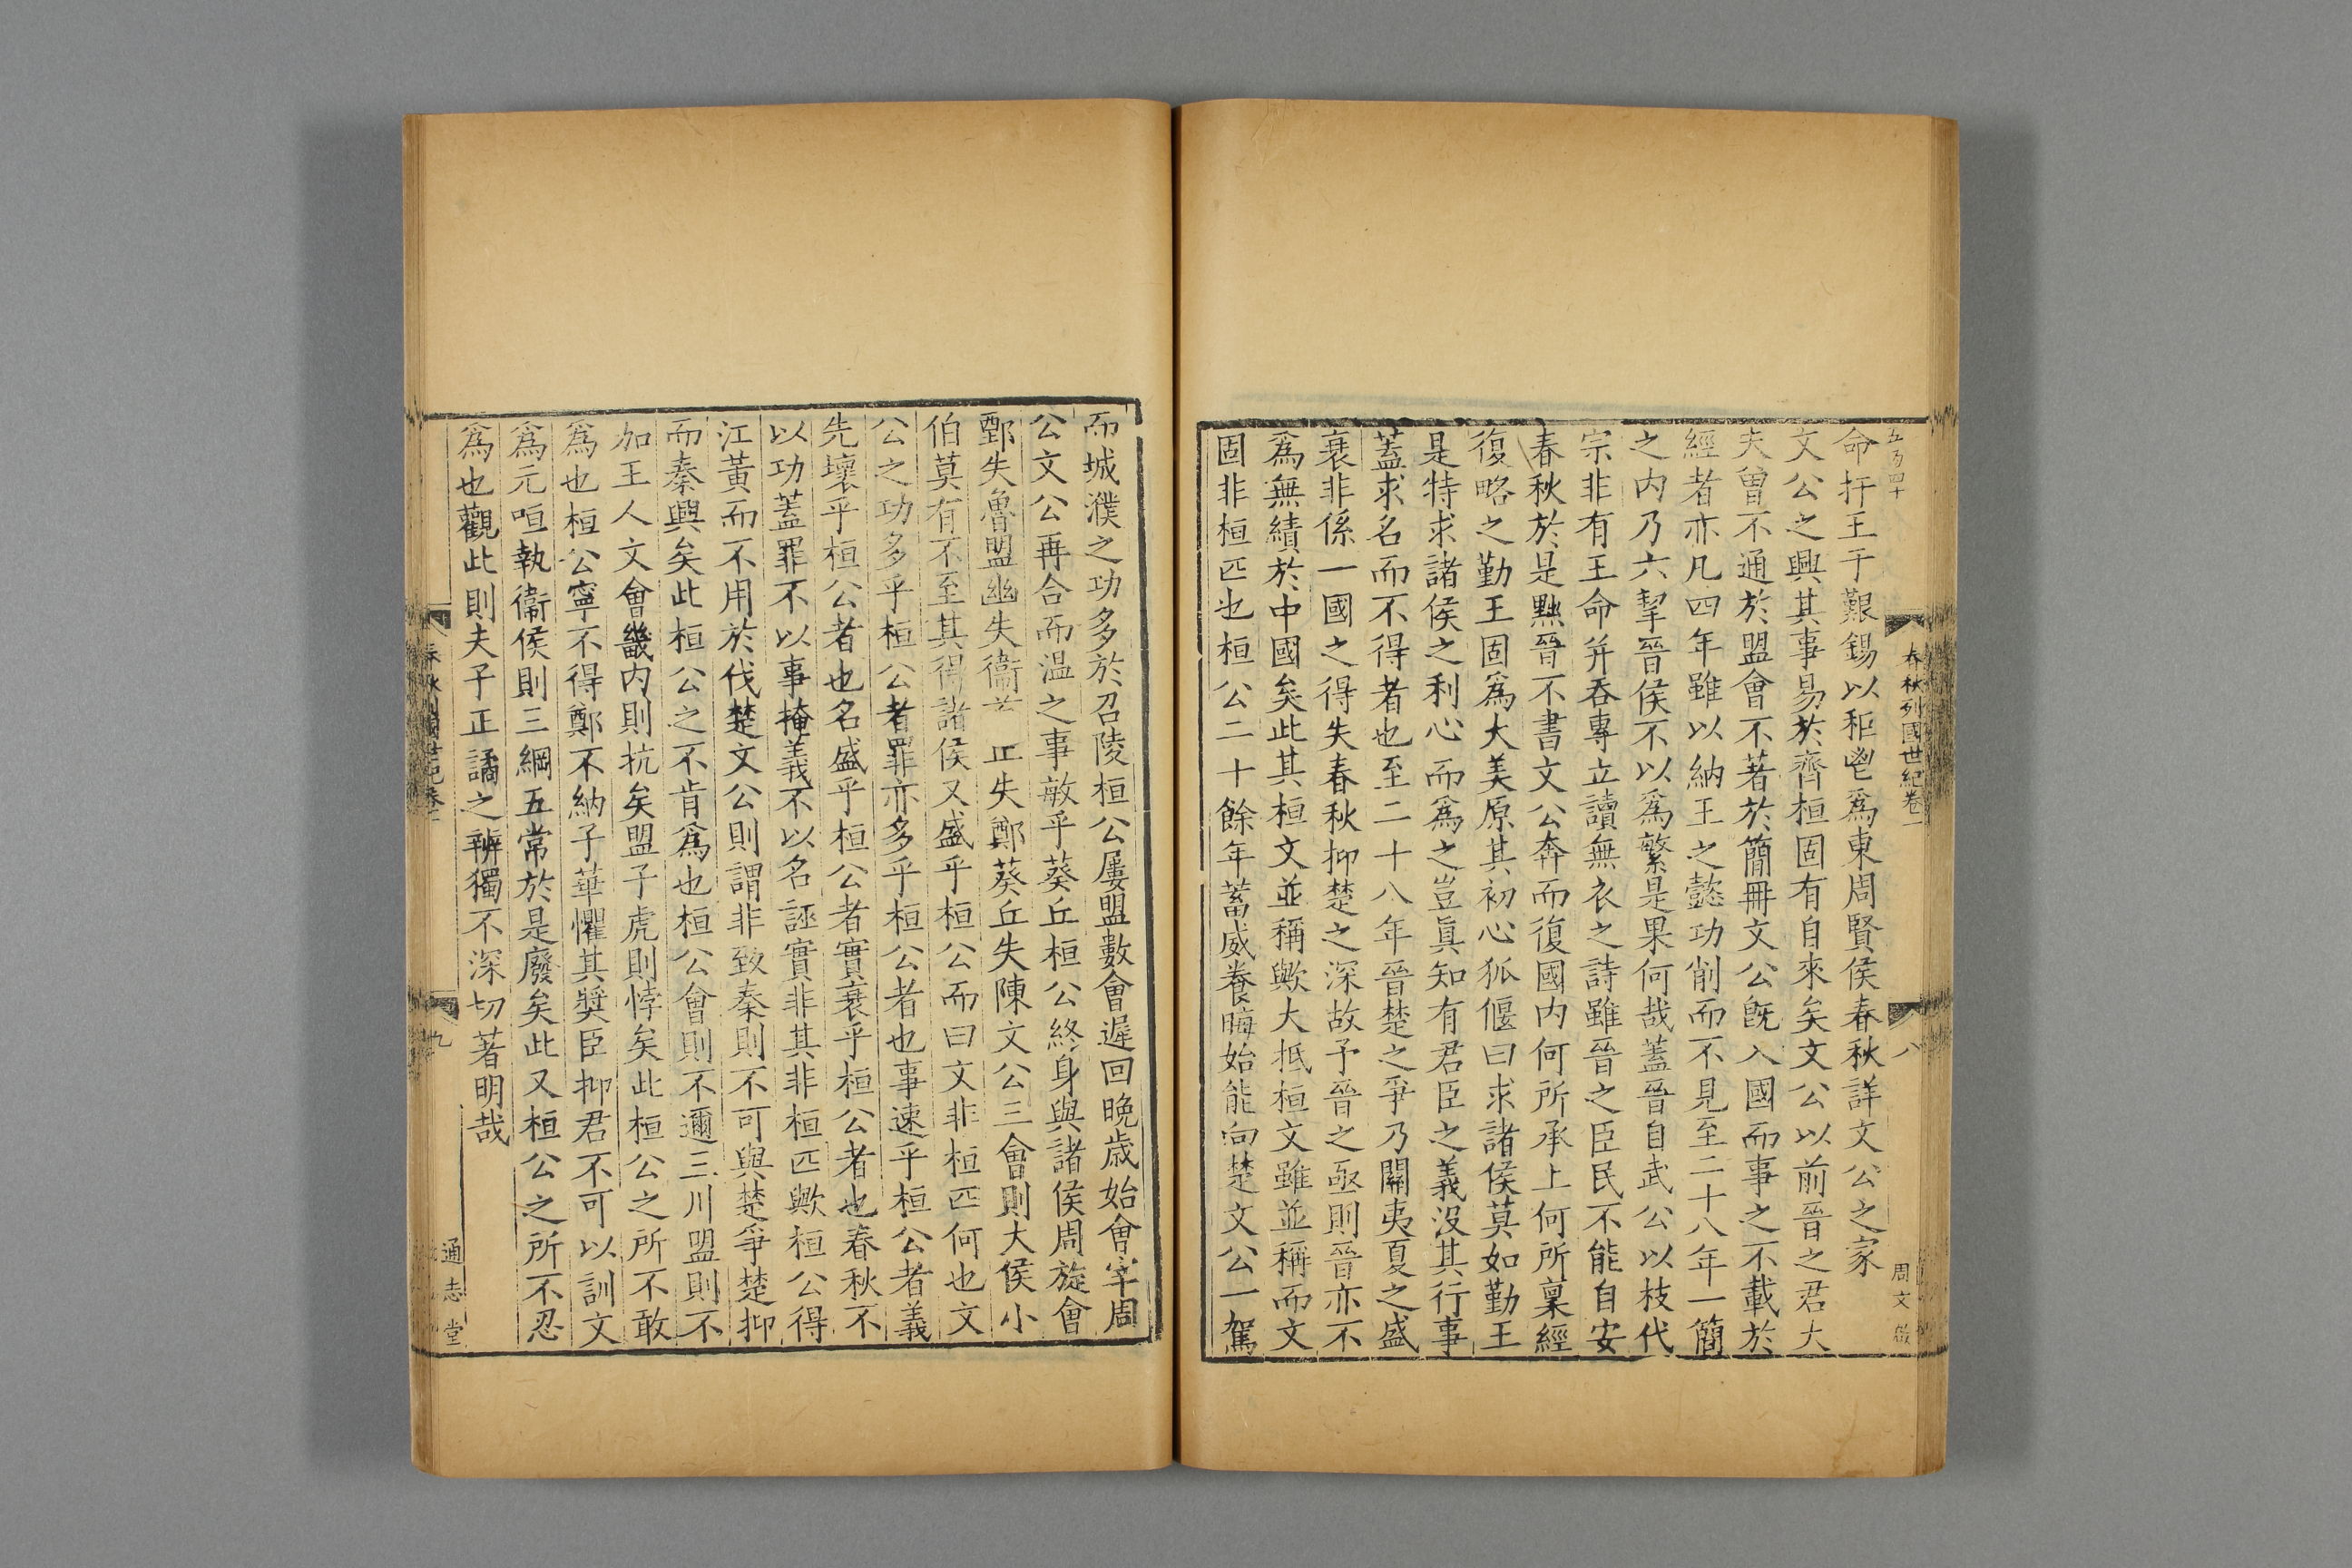 春秋列國世紀卷一
八
周文
命扞王于艱錫以秬鬯爲東周賢侯春秋詳文公之家
文公之興其事易於齊桓固有自來矣文公以前晉之君大
夫曾不通於盟會不著於簡冊文公旣入國而事之不載於
經者亦凡四年雖以納王之懿功削而不見至二十八年一簡
之内乃六挈晉侯不以爲繁是果何哉蓋晉自武公以枝代
宗非有王命并吞專立讀無衣之詩雖晉之臣民不能自安
春秋於是黜晉不書文公奔而復國内何所承上何所稟經
復略之勤王固爲大美原其初心狐偃曰求諸侯莫如勤王
是特求諸侯之利心而爲之豈眞知有君臣之義沒其行事
蓋求名而不得者也至二十八年晉楚之爭乃關夷夏之盛
衰非係一國之得失春秋抑楚之深故予晉之亟則晉亦不
爲無績於中國矣此其桓文並稱歟大抵桓文雖並稱而文
固非桓匹也桓公二十餘年蓄威養晦始能向楚文公一駕
而城濮之功多於召陵桓公屢盟數會遲回晚歳始會宰周
公文公再合而温之事敏乎葵丘桓公終身與諸侯周旋會
鄄失魯盟幽失衞 失鄭葵丘失陳文公三會則大侯小
伯莫有不至其得諸侯又盛乎桓公而曰文非桓匹何也文
公之功多乎桓公者罪亦多乎桓公者也事速乎桓公者義
先壞乎桓公者也名盛乎桓公者實衰乎桓公者也春秋不
以功蓋罪不以事掩義不以名誣實非其非桓匹歟桓公得
江黃而不用於伐楚文公則謂非致秦則不可與楚爭楚抑
而秦興矣此桓公之不肯爲也桓公會則不邇三川盟則不
加王人文會畿内則抗矣盟子虎則悖矣此桓公之所不敢
爲也桓公寧不得鄭不納子華懼其奬臣抑君不可以訓文
爲元咺執衞侯則三綱五常於是廢矣此又桓公之所不忍
爲也觀此則夫子正譎之辨獨不深切著明哉
九
通志堂